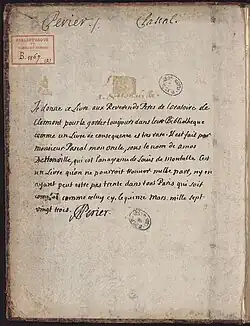 Perier /. Pascal.
BIBLIOTHEQUE
B. 5967
J'ai donné ce Livre aux Reverends Peres de l'oratoire de
clermont pour le garder toujours dans leur Bibliotheque
comme un Livre de consequence et tres rare. Il est fait par
monsieur Pascal mon oncle, sous le nom de amos
Dettonville, qui est l'anagrame de Louis de montalte. C'est
un Livre qu'on ne pourroit trouver nulle part, n'y en
ayant peut estre pas trente dans tout Paris qui soit
complet comme celuy cy. le quinze Mars. mille sept
vingt trois. Perier.